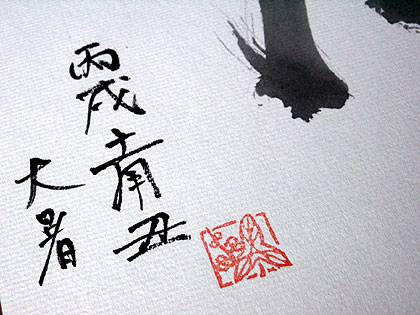 丙戌 丑
大暑